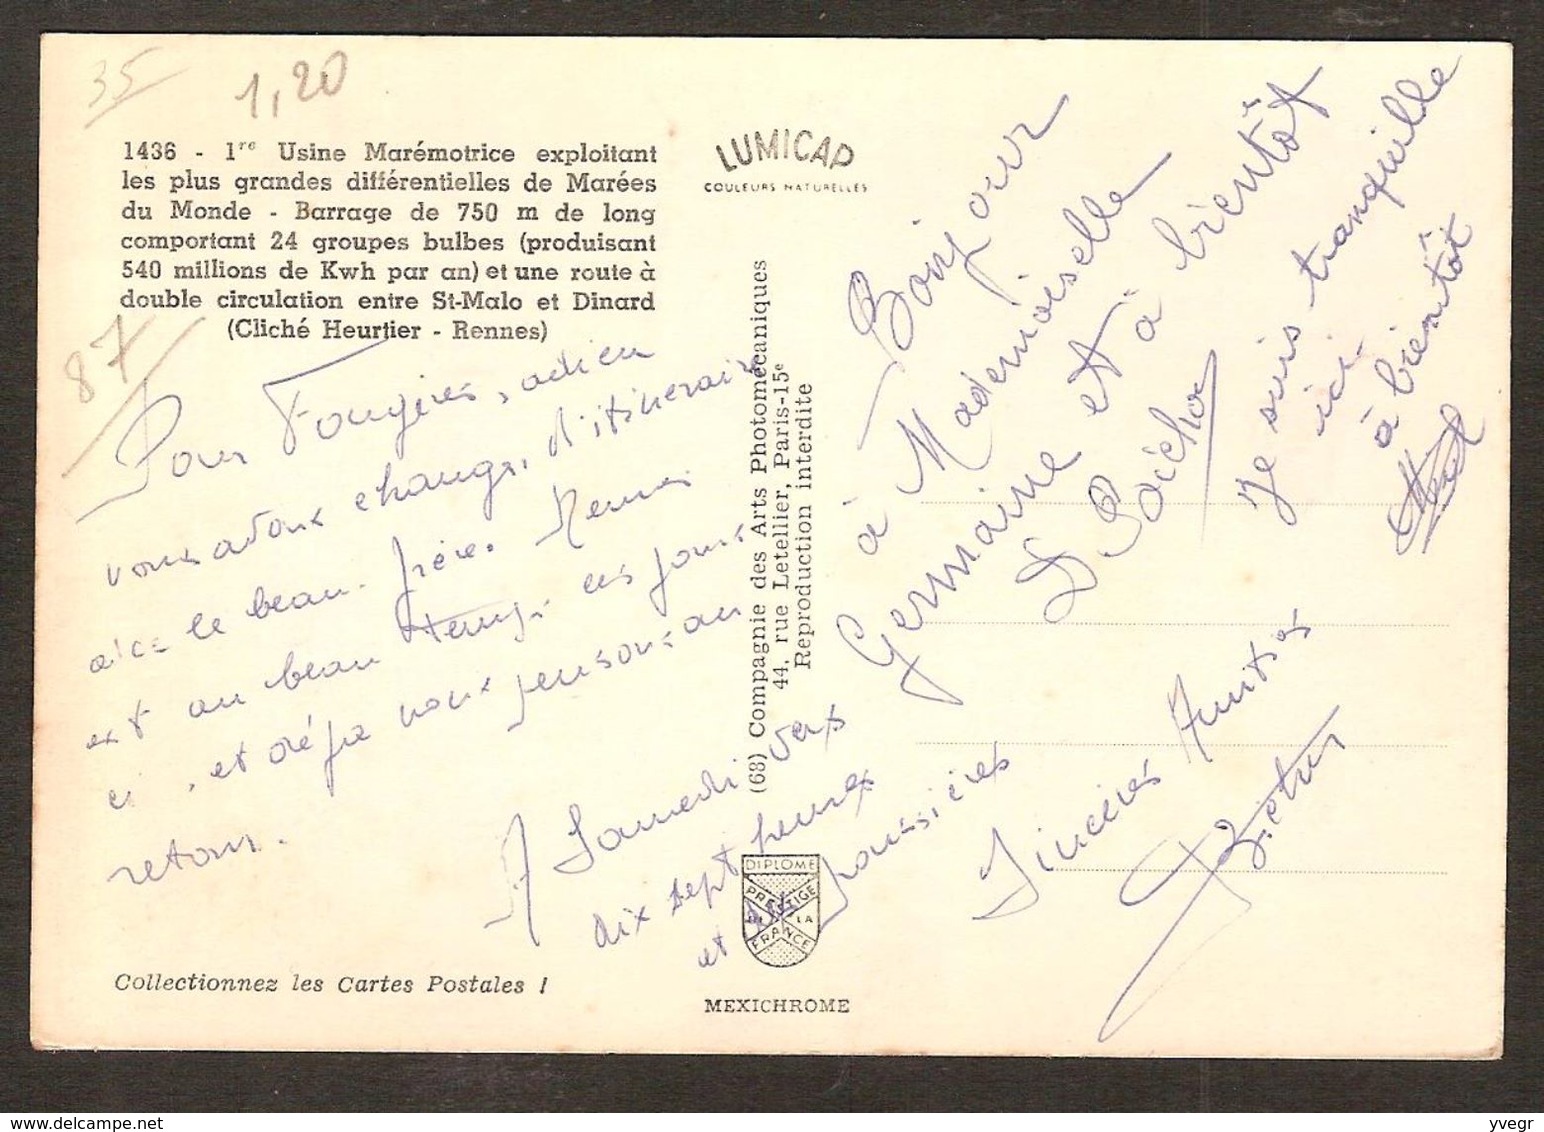 35
1,20
87
1436 - 1re Usine Marémotrice exploitant
les plus grandes différentielles de Marées
du Monde - Barrage de 750 m de long
comportant 24 groupes bulbes (produisant
540 millions de Kwh par an) et une route à
double circulation entre St-Malo et Dinard
(Cliché Heurtier - Rennes)
Pour Fougères, adieu
nous avons changé, d'itineraire
avec le beau-frère. Rennes
est au beau temps ces jours
ci, et déja nous pensons au
retour.
A Samedi vers
dix sept heures
et poussières
Collectionnez les Cartes Postales !
LUMICAP
COULEURS NATURELLES
(63) Compagnie des Arts Photomécaniques
44, rue Letellier, Paris-15e
Reproduction interdite
DIPLOME
PRESTIGE
DE LA
FRANCE
MEXICHROME
Bonjour
à Mademoiselle
Germaine et à bientôt
Je suis tranquille
ici.
à bientôt
Sincères Amitiés
yvegr